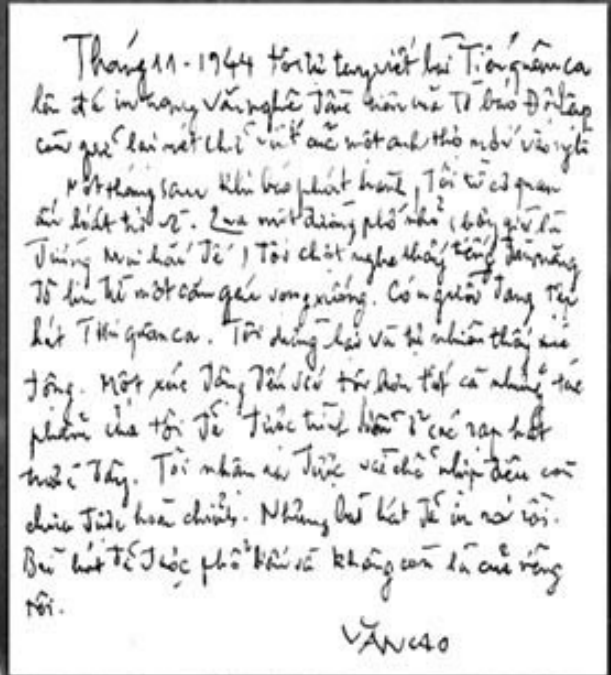 Tháng 11 - 1944 tôi tự tay viết bài Tiến quân ca
lên đá in trong văn nghệ đầu tiên của tờ báo Độc lập
còn giữ lại nét chữ viết của một anh thợ mới vào nghề
Một tháng sau khi báo phát hành, Tôi từ cơ quan
ấn loát trở về. Qua một đường phố nhỏ (bây giờ là
đường Mai hắc đế) Tôi chợt nghe thấy tiếng đàn măng
đô lin từ một căn gác vọng xuống. Có người đang tập
hát Tiến quân ca. Tôi dừng lại và tự nhiên thấy xúc
động. Một xúc động đến với tôi hơn tất cả những tác
phẩm của tôi đã được trình diễn ở các rạp hát
trước đây. Tôi nhận ra được vài chỗ nhịp điệu còn
chưa được hoàn chỉnh. Nhưng bài hát đã in ra rồi.
Bài hát đã được phổ biến và không còn là của riêng
tôi.
VĂN CAO